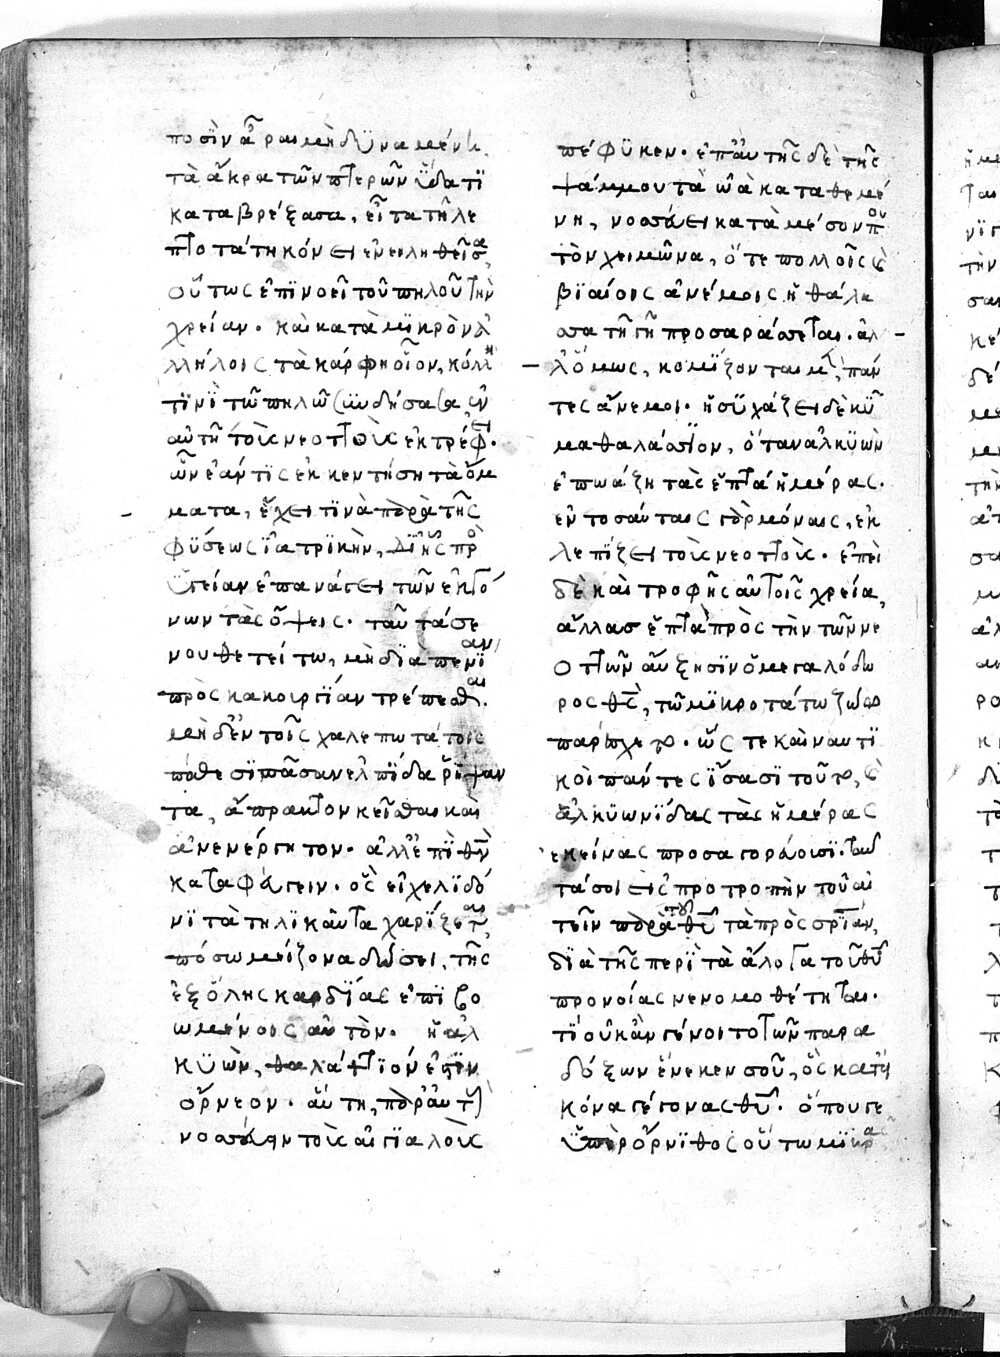 ποσὶν ἆραι μὴ δϋναμένη,
τὰ ἄκρα τῶν πτερῶν ὕδατϊ
καταβρέξασα, εἶτα τῆ λε
πτοτάτη κόνει ἐνειληθεῖσα,
οὕτως ἐπϊνοεῖ τοῦ πηλοῦ τὴν
χρείαν· καὶ κατὰ μϊκρὸν ἀ
λλήλοις τὰ κάρφη οἷον, κόλλη
τϊνϊ τῶ πηλῶ συνδήσασα, ἐν
αὐτῆ τοὺς νεοττοὺς ἐκτρέφει·
ὧν ἐάν τϊς ἐκκεντήση τὰ ὄμ
ματα, ἔχει τϊνὰ παρὰ τῆς
φϋσεως ϊατρϊκὴν, δι' ἧς πρὸς
ὑγείαν ἐπανάγει τῶν ἐκγό
νων τὰς ὄψεις· ταῦτά σε
νουθετείτω, μὴ δϊὰ πενϊαν
πρὸς κακουργϊαν τρέπεσθαι·
μὴ δ' ἐν τοῖς χαλεπωτάτοις
πάθεσϊ πᾶσαν ἐλπϊδα ῥϊψαν
τα, ἄπρακτον κεῖσθαι καὶ
ἀνενέργητον· ἀλλ' ἐπὶ θν
καταφεύγειν· ὃς εἰ χελϊδό
νϊ τὰ τηλϊκαῦτα χαρίζεται,
πόσω μείζονα δώσει, τῆς
ἐξ ὅλης καρδϊας ἐπϊβο
ωμένοις αὐτὸν· ἡ ἀλ
κϋὼν, θαλάττϊόν ἐστϊν
ὄρνεον· αὕτη, παρ' αὐτοὺς
νοσσεύειν τοὺς αἰγϊαλοὺς
πέφϋκεν· ἐπ' αὐτῆς δὲ τῆς
ψάμμου τὰ ὠὰ καταθεμέ
νη, νοσσεύει κατὰ μέσον που
τὸν χειμῶνα, ὅτε πολλοῖς καὶ
βϊαίοις ἀνέμοις ἡ θάλα
σσα τῆ γῆ προσαράσσεται· ἀλ
λ' ὅμως, κοιμϊζονται μὲν πάν
τες ἄνεμοι· ἡσϋχάζει δὲ κῦ
μα θαλάσσϊον, ὅταν ἀλκϋὼν
ἐπωάζη τὰς ἑπτὰ ἡμέρας·
ἐν τοσαύταις γὰρ μόναις, ἐκ
λεπϊζει τοὺς νεοττοὺς· ἐπεὶ
δὲ καὶ τροφῆς αὐτοῖς χρεία,
ἄλλας ἑπτὰ πρὸς τὴν τῶν νε
οττῶν αὔξησϊν ὁ μεγαλόδω
ρος θς, τῶ μϊκροτάτω ζώω
παρέσχετο· ὥστε καὶ ναυτϊ
κοὶ πάντες ἴσασϊ τοῦτο, καὶ
ἀλκϋωνϊδας τὰς ἡμέρας
ἐκείνας προσαγορεύουσϊ· ταῦ
τά σοι εἰς προτροπὴν τοῦ αἰ
τεῖν παρὰ θυ τὰ πρὸς σρϊαν,
δϊὰ τῆς περϊ τὰ ἄλογα τοῦ θυ
προνοίας νενομοθέτηται·
τϊ οὐκ ἂν γένοιτο τῶν παρα
δόξων ἕνεκεν σοῦ, ὃς κατ' εἰ
κόνα γέγονας θυ· ὅπου γε
ὑπὲρ ὄρνϊθος οὕτω μϊκρας